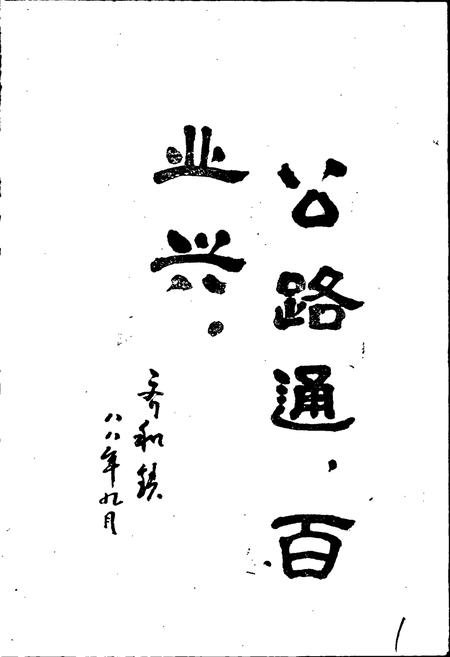 公路通，百
业兴．
齐和
八八年九月